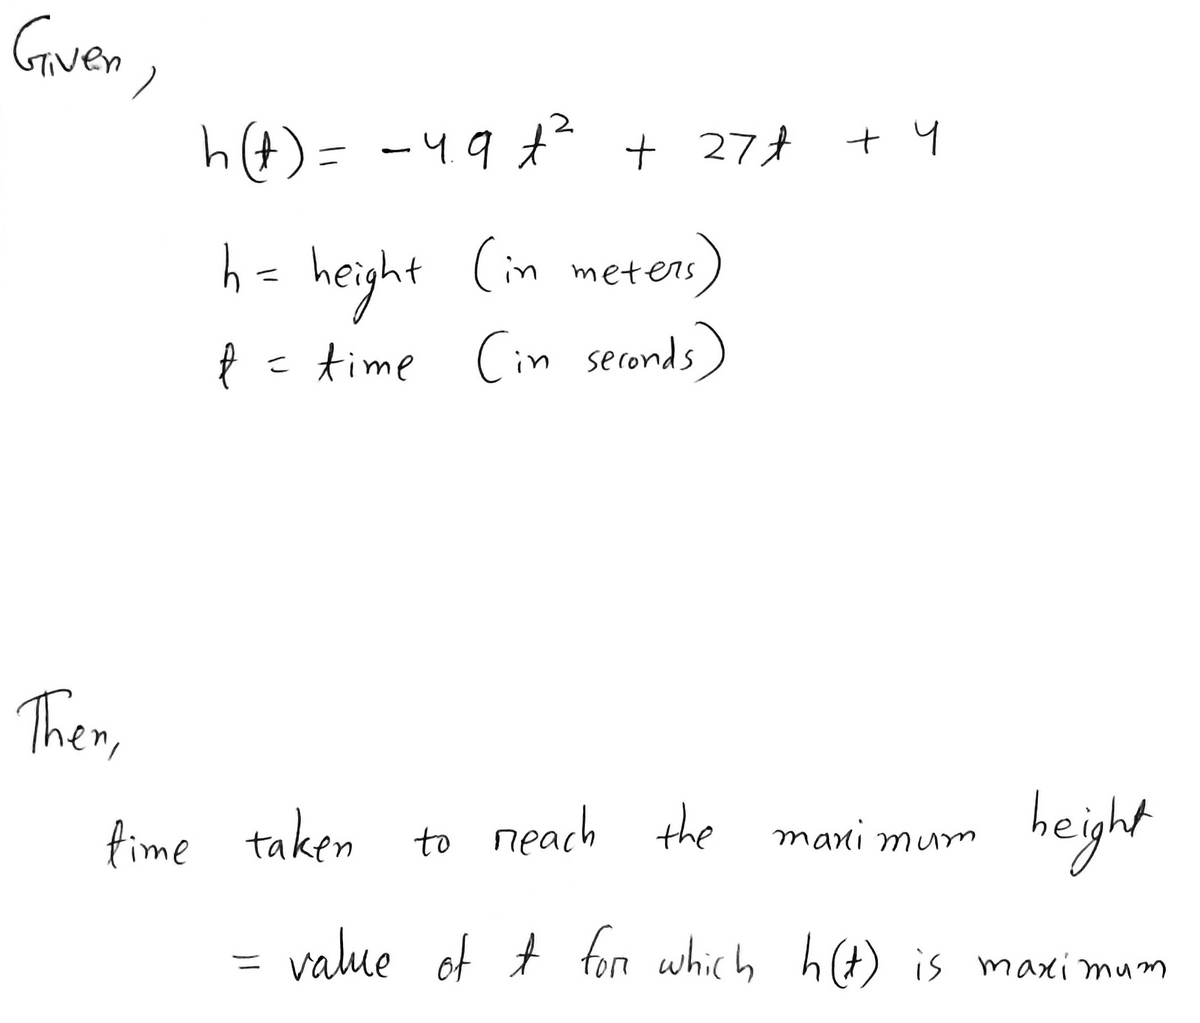 Given,
h(t) = -4.9 t² + 27t + 4
h = height (in meters)
t = time (in seconds)
Then,
time taken to reach the maximum height
= value of t for which h(t) is maximum